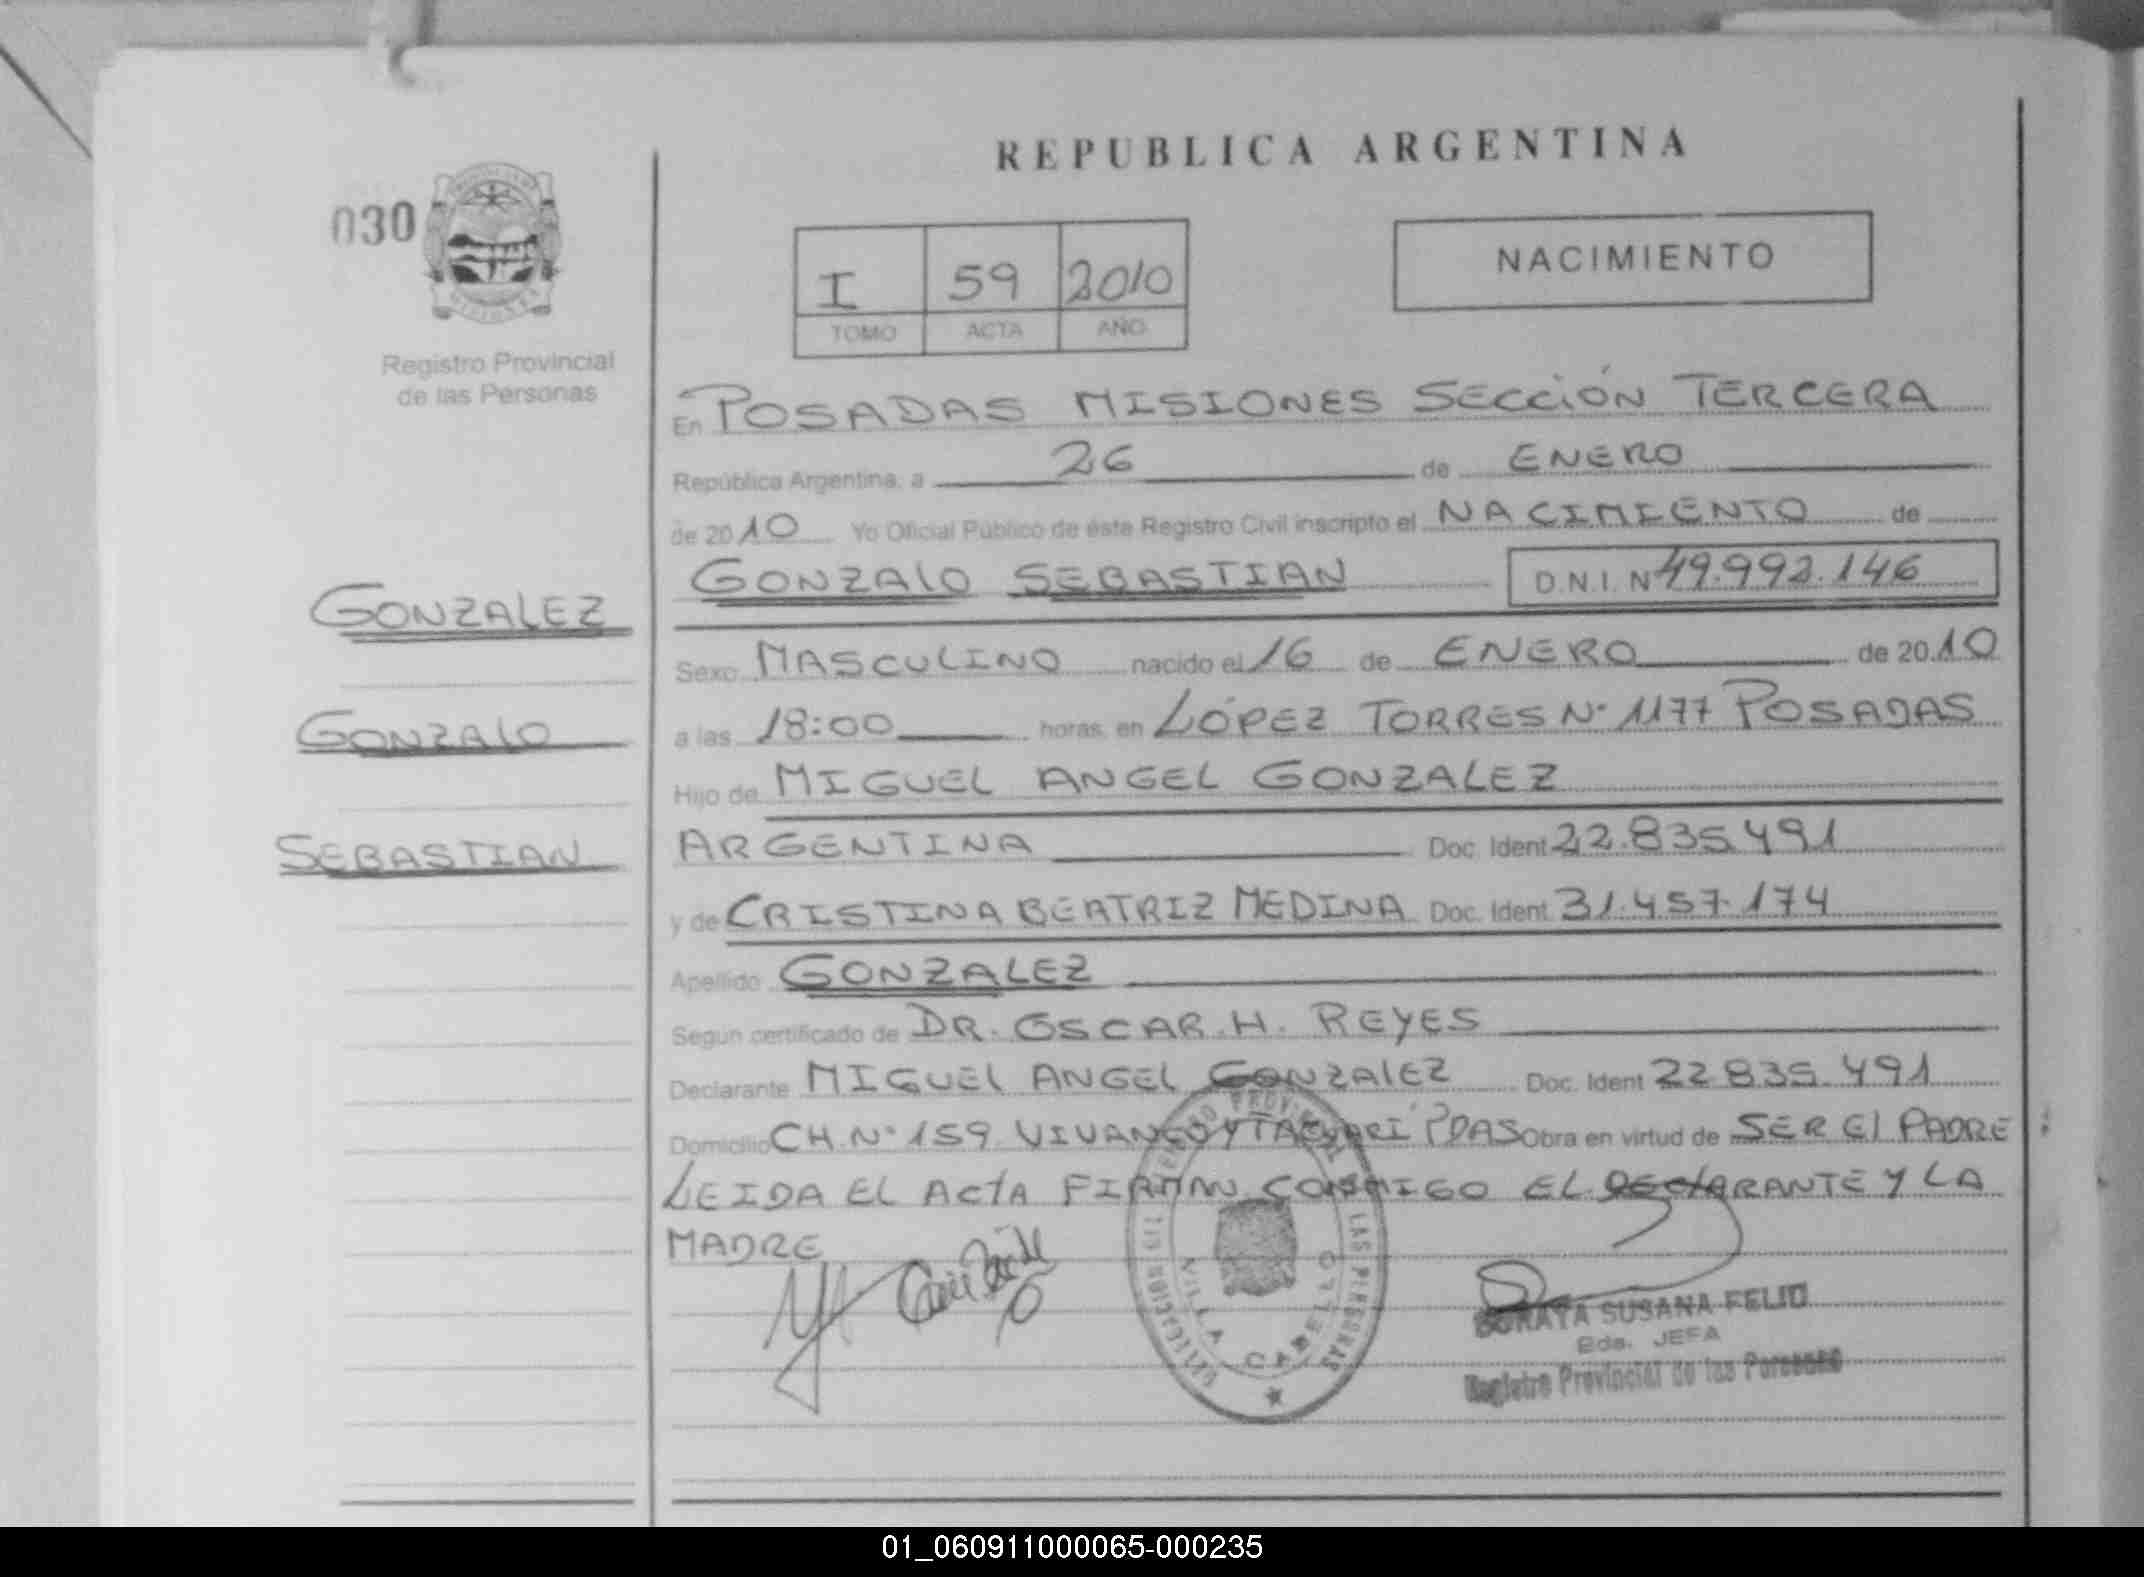 REPUBLICA ARGENTINA
030
Registro Provincial
de las Personas
I 59 2010
TOMO ACTA AÑO
NACIMIENTO
En POSADAS MISIONES SECCIÓN TERCERA
República Argentina, a 26 de ENERO
de 2010 Yo Oficial Público de éste Registro Civil inscripto el NACIMIENTO de
GONZALO SEBASTIAN D.N.I. Nº 49.992.146
GONZALEZ
GONZALO
SEBASTIAN
Sexo MASCULINO nacido el 16 de ENERO de 2010
a las 18:00 horas, en LÓPEZ TORRES Nº 1177 POSADAS
Hijo de MIGUEL ANGEL GONZALEZ
ARGENTINA Doc. Ident 22.835.491
y de CRISTINA BEATRIZ MEDINA Doc. Ident. 31.457.174
Apellido GONZALEZ
Según certificado de DR. OSCAR H. REYES
Declarante MIGUEL ANGEL GONZALEZ Doc. Ident 22.835.491
Domicilio CH. Nº 159 VIVANCO Y TACUARÍ PDAS Obra en virtud de SER El PADRE
LEIDA EL ACTA FIRMAN CONMIGO EL DECLARANTE Y LA
MADRE
VILLA CABELLO
SORAYA SUSANA FELIO
JEFA
Registro Provincial de las Personas
01_060911000065-000235